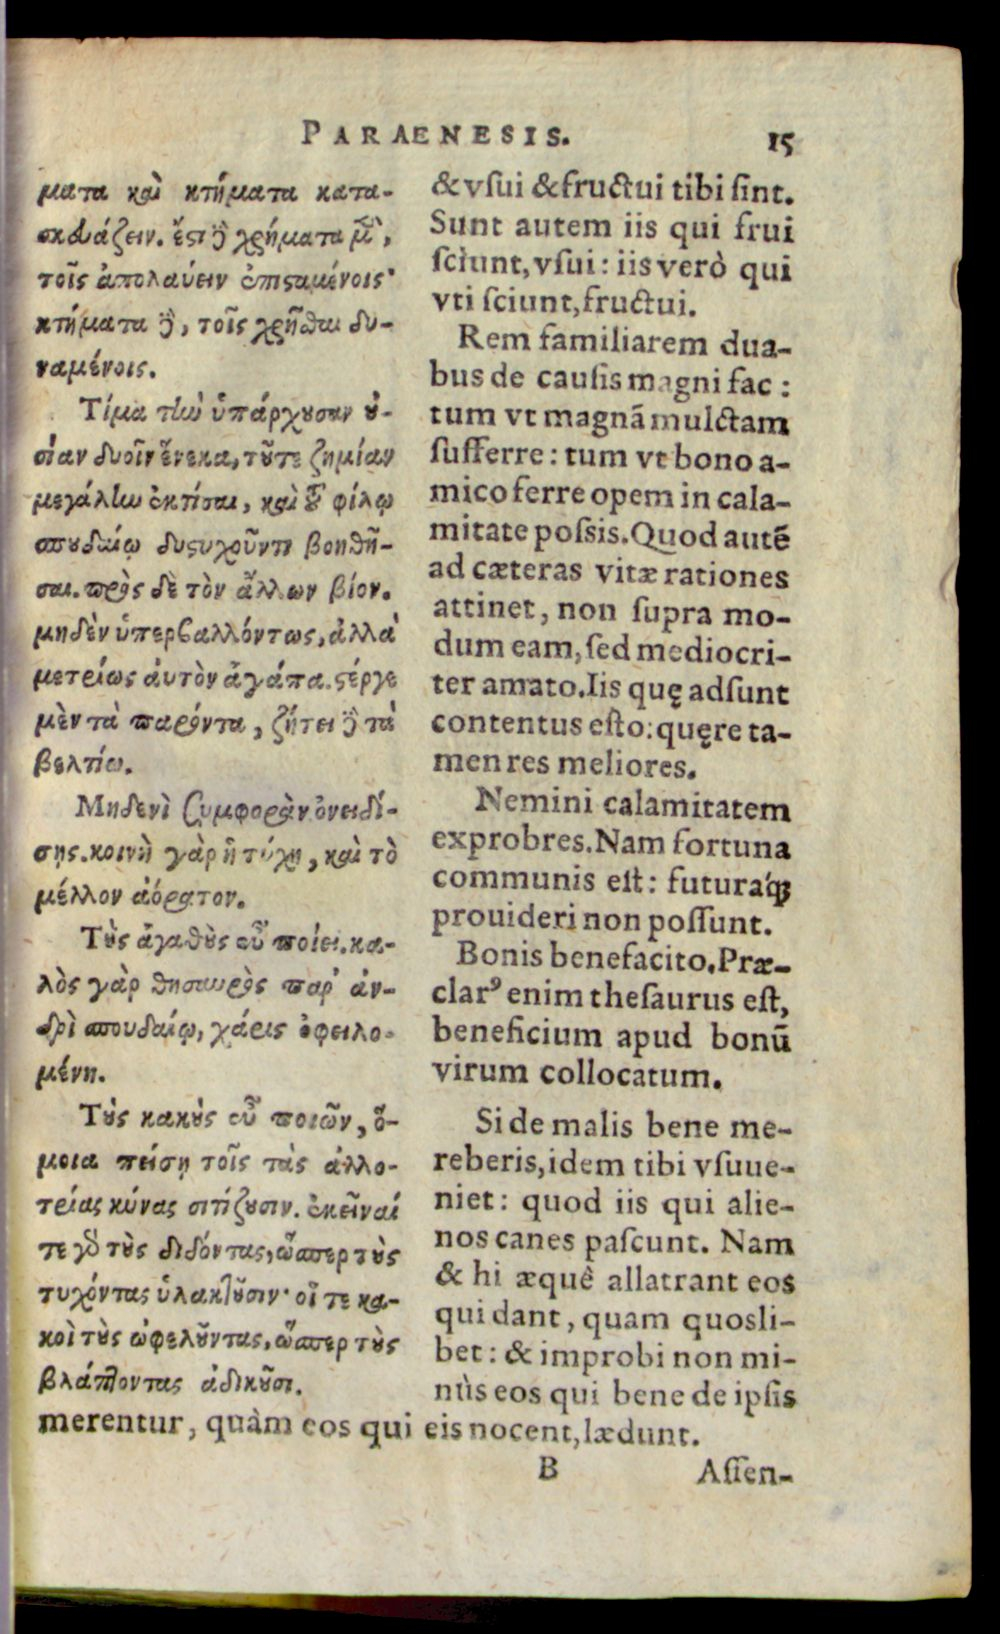 PARAENESIS. 15
ματα καὶ κτήματα κατα-
σκευάζειν. ἔστι δὲ χρήματα μὲν,
τοῖς ἀπολαύειν ἐπισταμένοις·
κτήματα δὲ, τοῖς χρῆσθαι δυ-
ναμένοις.
Τίμα τὴν ὑπάρχουσαν οὐ-
σίαν δυοῖν ἕνεκα, τοῦτε ζημίαν
μεγάλην ἐκτίσαι, καὶ τοῦ φίλῳ
σπουδαίῳ δυστυχοῦντι βοηθῆ-
σαι. πρὸς δὲ τὸν ἄλλων βίον.
μηδὲν ὑπερβαλλόντως, ἀλλὰ
μετρίως ἀυτὸν ἀγάπα. στέργε
μὲν τὰ παρόντα, ζήτει δὲ τὰ
βελτίω.
Μηδενὶ συμφορὰν ὀνειδί-
σῃς. κοινὴ γὰρ ἡ τύχη, καὶ τὸ
μέλλον ἀόρατον.
Τοὺς ἀγαθοὺς εὖ ποίει. κα-
λὸς γὰρ θησαυρὸς παρ' ἀν-
δρὶ σπουδαίῳ, χάρις ὀφειλο-
μένη.
Τοὺς κακοὺς εὖ ποιῶν, ὅ-
μοια πείσῃ τοῖς τὰς ἀλλο-
τρίας κύνας σιτίζουσιν. ἐκεῖναί
τε γὰρ τοὺς διδόντας, ὥσπερ τοὺς
τυχόντας ὑλακτοῦσιν· οἵ τε κα-
κοὶ τοὺς ὠφελοῦντας, ὥσπερ τοὺς
βλάπτοντας ἀδικοῦσι.
& vſui & fructui tibi ſint.
Sunt autem iis qui frui
ſciunt, vſui: iis verò qui
vti ſciunt, fructui.
Rem familiarem dua-
bus de cauſis magni fac:
tum vt magnã mulctam
ſufferre: tum vt bono a-
mico ferre opem in cala-
mitate poſsis. Quod autẽ
ad cæteras vitæ rationes
attinet, non ſupra mo-
dum eam, ſed mediocri-
ter amato. Iis quę adſunt
contentus eſto: quęre ta-
men res meliores.
Nemini calamitatem
exprobres. Nam fortuna
communis eſt: futuráq;
prouideri non poſſunt.
Bonis benefacito. Præ-
clarꝰ enim theſaurus eſt,
beneficium apud bonũ
virum collocatum.
Si de malis bene me-
reberis, idem tibi vſuue-
niet: quod iis qui alie-
nos canes paſcunt. Nam
& hi æquè allatrant eos
qui dant, quam quosli-
bet: & improbi non mi-
nùs eos qui bene de ipſis
merentur, quàm eos qui eis nocent, lædunt.
B Aſſen-